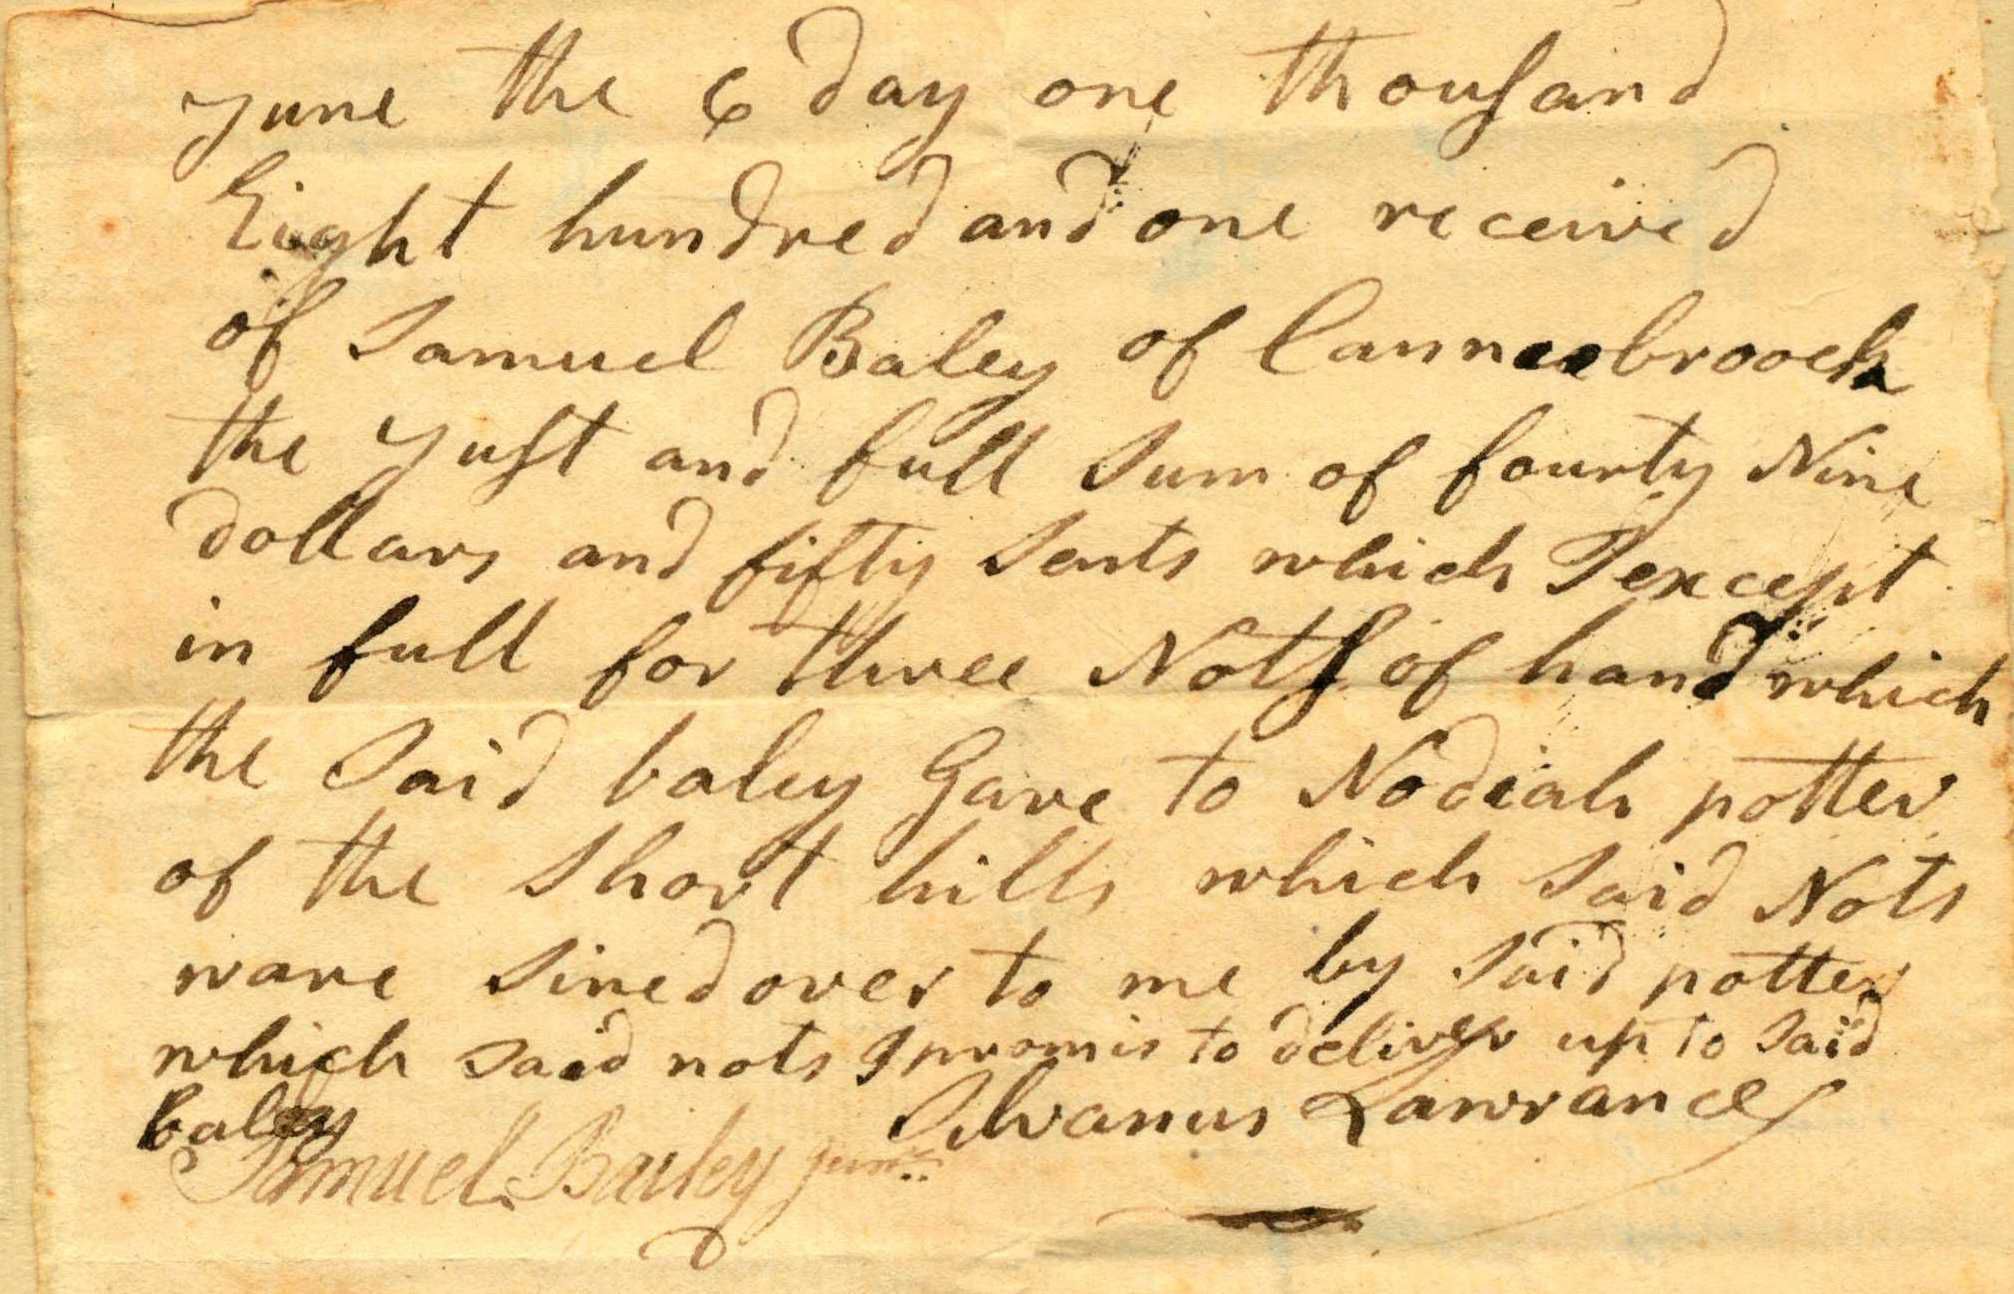 June the 6 day one thousand
Eight hundred and one received
of Samuel Baley of Cannoobroock
the Just and full Sum of fourty Nine
dollars and fifty Sents which I except
in full for three Nots of hand which
the Said baley Gave to Nodiah potter
of the Short hills which Said Nots
ware Sined over to me by Said potter
which Said nots I promis to deliver up to Said
baley
Silvanus Lawrance
Samuel Bailey junr